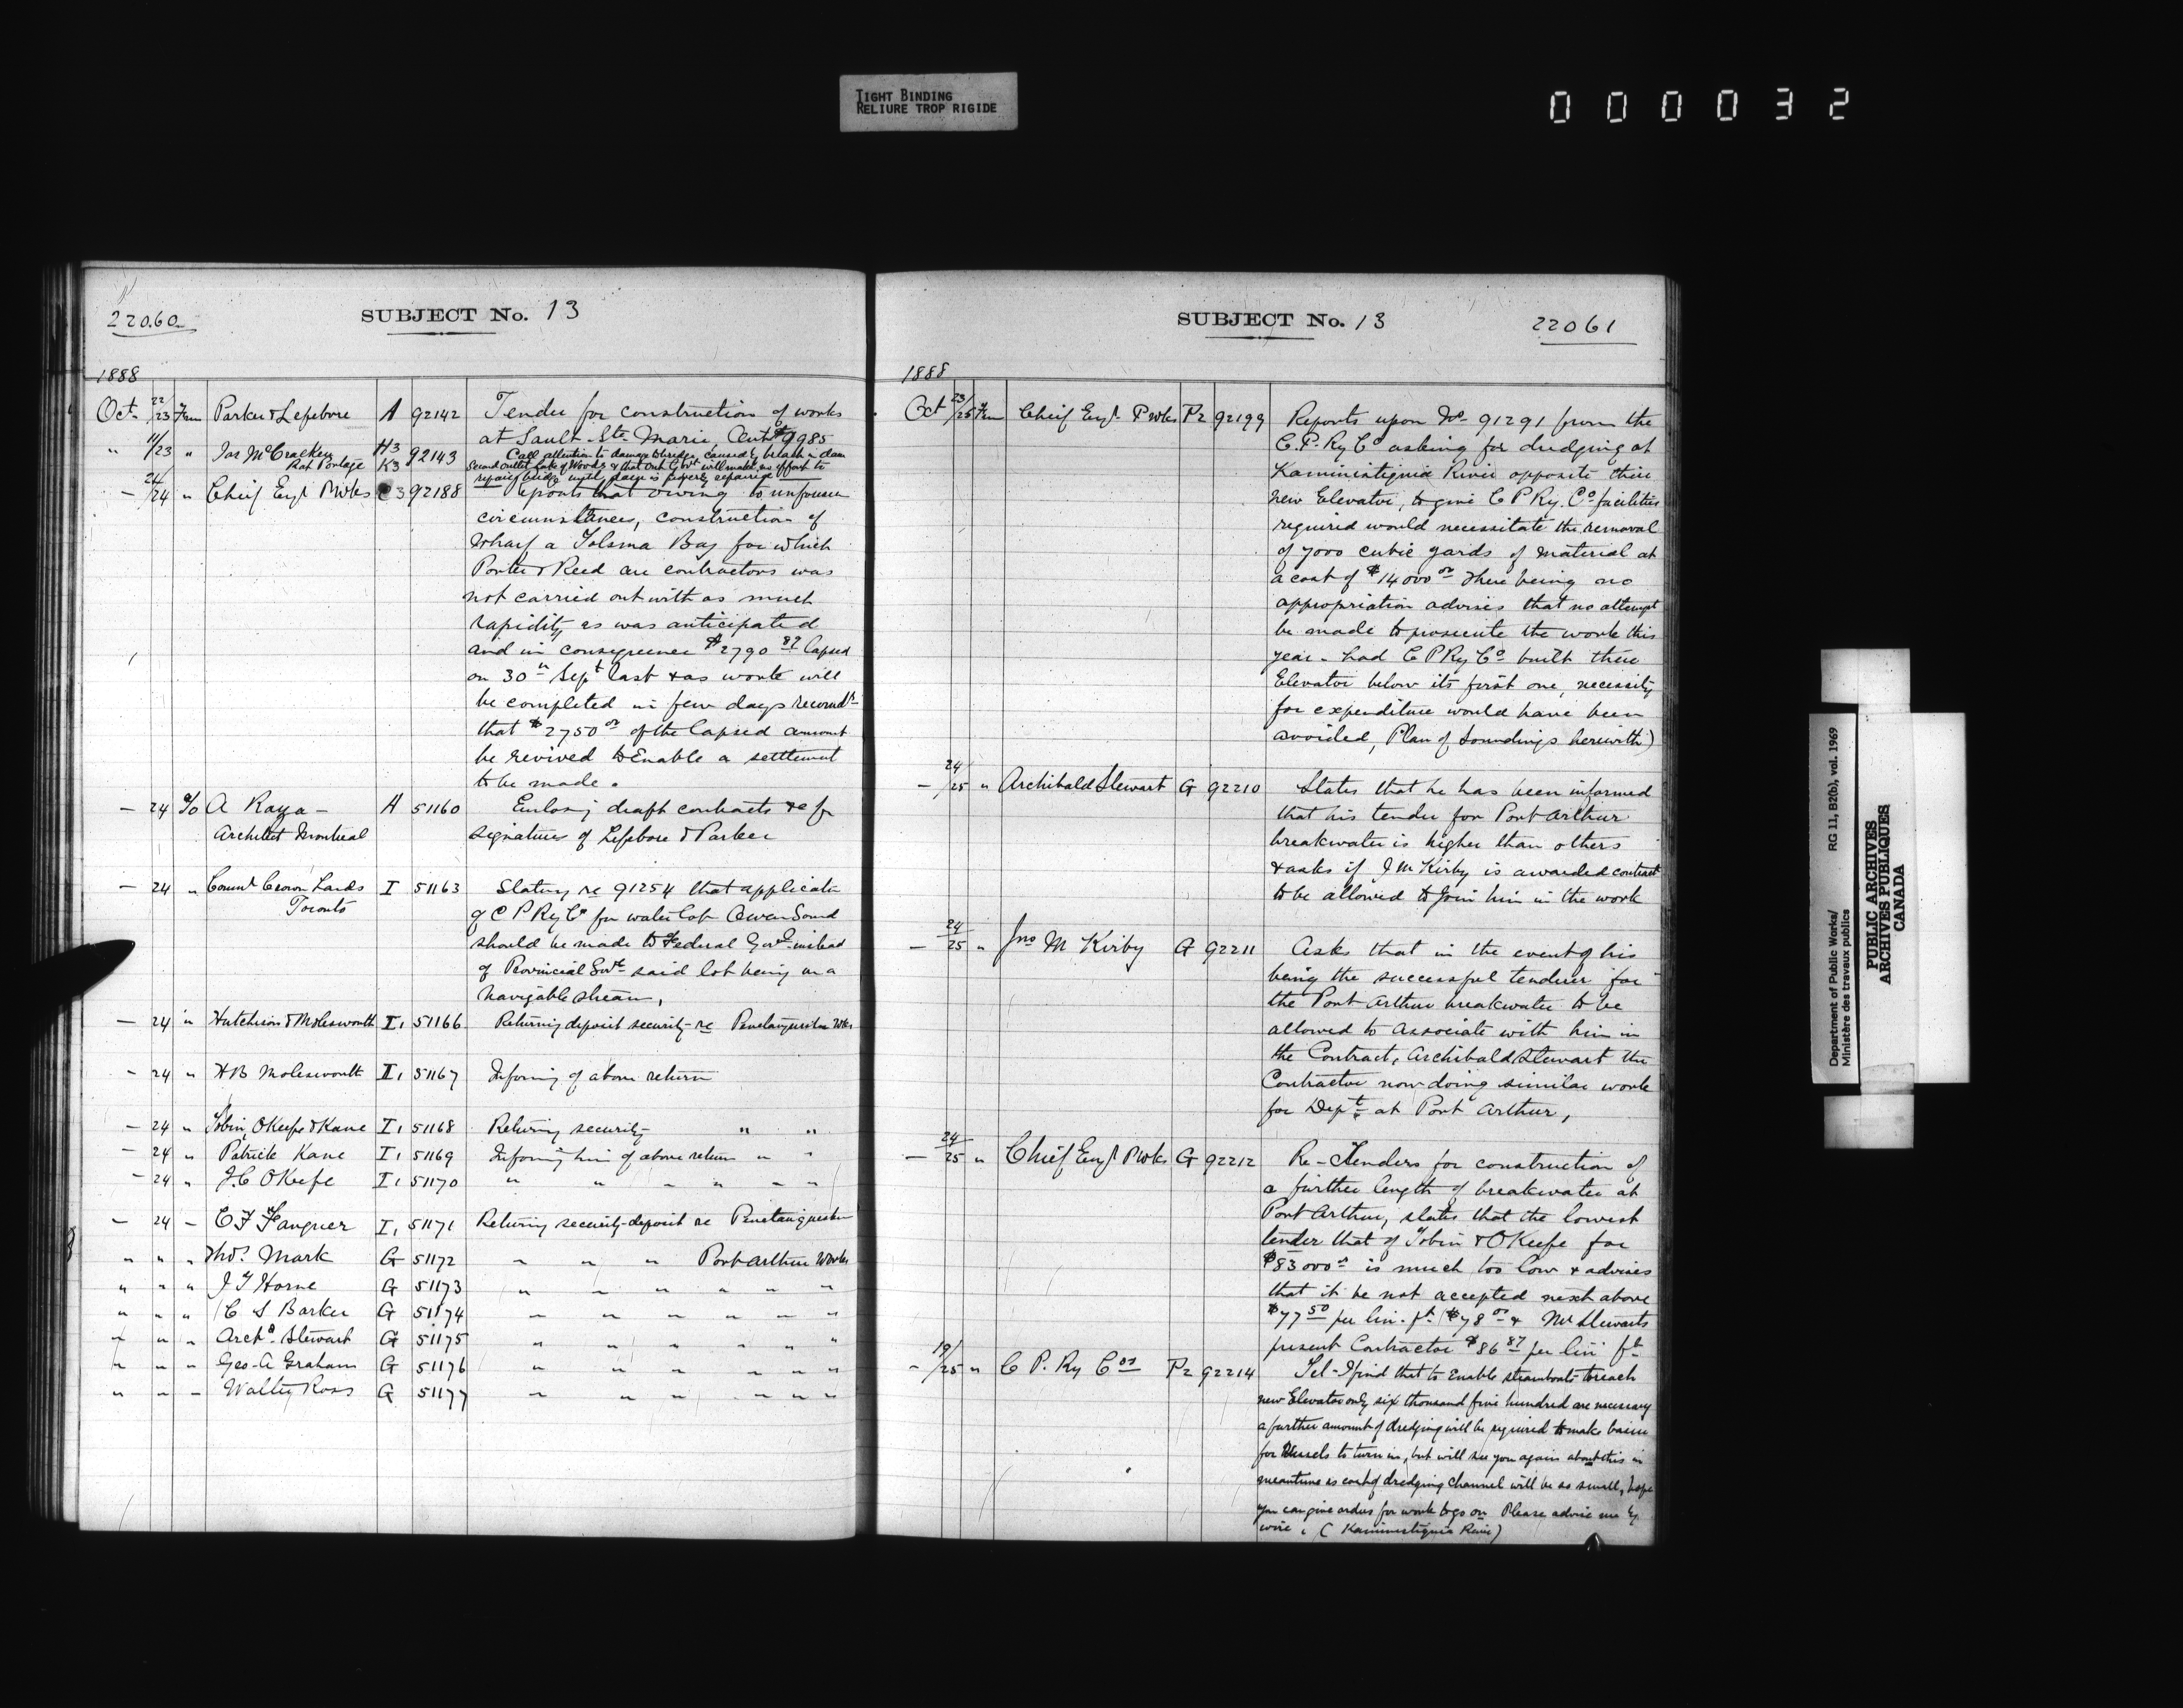 TIGHT BINDING
RELIURE TROP RIGIDE
000032
22060
SUBJECT No. 13
1888
Oct. 22/23 Fm Parker & Lefebvre A 92142 Tender for construction of works
at Sault-Ste-Marie, Ont. $9985
" 11/23 " Jas McCracken H3 92143 Call attention to damage to bridge, caused by break in dam
Rat Portage K3 Second outlet Lake of Woods & that Ont Govt will make no effort to
repair bridge until dam is properly repaired
- 24/24 " Cheif Engr PWks C3 92188 Reports that owing to unforseen
circumstances, construction of
Wharf a Tolsma Bay for which
Porter & Reed are contractors was
not carried out with as much
rapidity as was anticipated
and in consequence $2790 87 lapsed
on 30th Sept last & as work will
be completed in few days recomds
that $2750 00 of the lapsed amount
be revived to Enable a settlement
to be made.
- 24 To A Raza - A 51160 Enclosing draft contracts &c for
Architect Montreal signatures of Lefebvre & Parker
- 24 " Commr Crown Lands I 51163 Stating re 91254 that applicatn
Toronto of C P Ry Co for water lot Owen Sound
should be made to Federal Govt instead
of Provincial Govt said lot being in a
navigable stream,
- 24 " Hutchison & Molesworth I1 51166 Returning deposit security re Penetanguishene Wks
- 24 " H B Molesworth I1 51167 Informing of above return
- 24 " Tobin, OKeefe & Kane I1 51168 Returning security " "
- 24 " Patrick Kane I1 51169 Informing him of above return " "
- 24 " J.C OKeefe I1 51170 " " " " " "
- 24 - C F Fauquier I1 51171 Returning security-deposit re Penetanguishene
" " " Thos. Mark G 51172 " " " Port Arthur Works
" " " J T Horne G 51173 " " " " " "
" " " C S Barker G 51174 " " " " " "
" " " Archd. Stewart G 51175 " " " " "
" " " Geo A Graham G 51176 " " " " " "
" " - Walter Ross G 51177 " " " " " "
SUBJECT No. 13
22061
1888
Oct 23/25 Fm Cheif Engr PWks P2 92199 Reports upon No 91291 from the
C.P. Ry Co asking for dredging at
Kaministiquia River opposite their
new Elevator, to give C P Ry. Co facilities
required would necessitate the removal
of 7000 cubic yards of material at
a cost of $14000 00 There being no
appropriation advises that no attempt
be made to prosecute the work this
year. had C P Ry Co built there
Elevator below its first one, necessity
for expenditure would have been
avoided, Plan of Soundings herewith)
- 24/25 " Archibald Stewart G 92210 States that he has been informed
that his tender for Port Arthur
breakwater is higher than others
& asks if J M Kirby is awarded contract
to be allowed to Join him in the work
- 24/25 " Jno M Kirby G 92211 Asks that in the event of his
being the successful tenderer for
the Port Arthur breakwater to be
allowed to associate with him in
the Contract, Archibald Stewart the
Contractor now doing similar work
for Dept at Port Arthur,
- 24/25 " Chief Engr PWks G 92212 Re-Tenders for construction of
a further length of breakwater at
Port Arthur, states that the lowest
tender that of Tobin & OKeefe for
$83000 is much too low & advises
that it be not accepted next above
$77 50 per lin. ft ($78 00 & Mr Stewarts
present Contractor $86 87 per lin ft
- 19/25 " C P. Ry Cos P2 92214 Tel-I find that to Enable steamboats to reach
new Elevator only six thousand five hundred are necessary
a further amount of dredging will be required to make basin
for Vessels to turn in, but will see you again about this in
meantime as cost of dredging channel will be so small, hope
you can give orders for work to go on Please advise me by
wire. (Kaministiquia River)
Department of Public Works/ RG 11, B2(b), vol. 1969
Ministère des travaux publics
PUBLIC ARCHIVES
ARCHIVES PUBLIQUES
CANADA